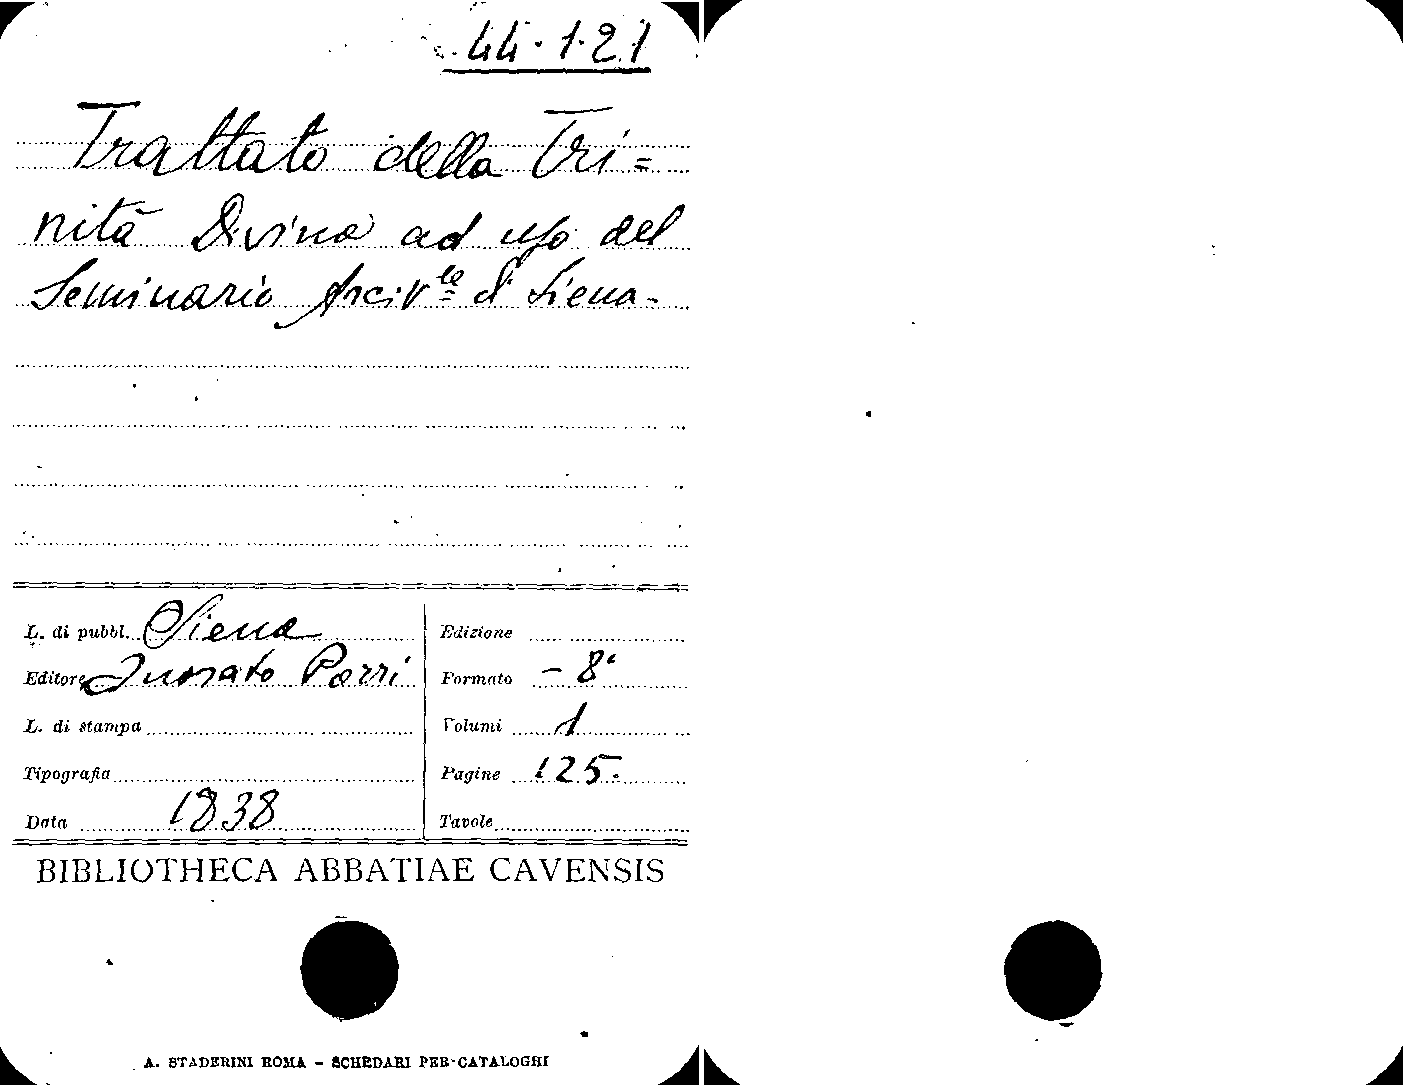 44.1.21
Trattato della Tri=
nità Divina ad uso del
Seminario Arciv.le di Siena.
L. di pubbl. Siena
Editore Onorato Porri
L. di stampa
Tipografia
Data 1838
Edizione
Formato - 8°
Volumi 1
Pagine 125.
Tavole
BIBLIOTHECA ABBATIAE CAVENSIS
A. STADERINI ROMA - SCHEDARI PER CATALOGHI